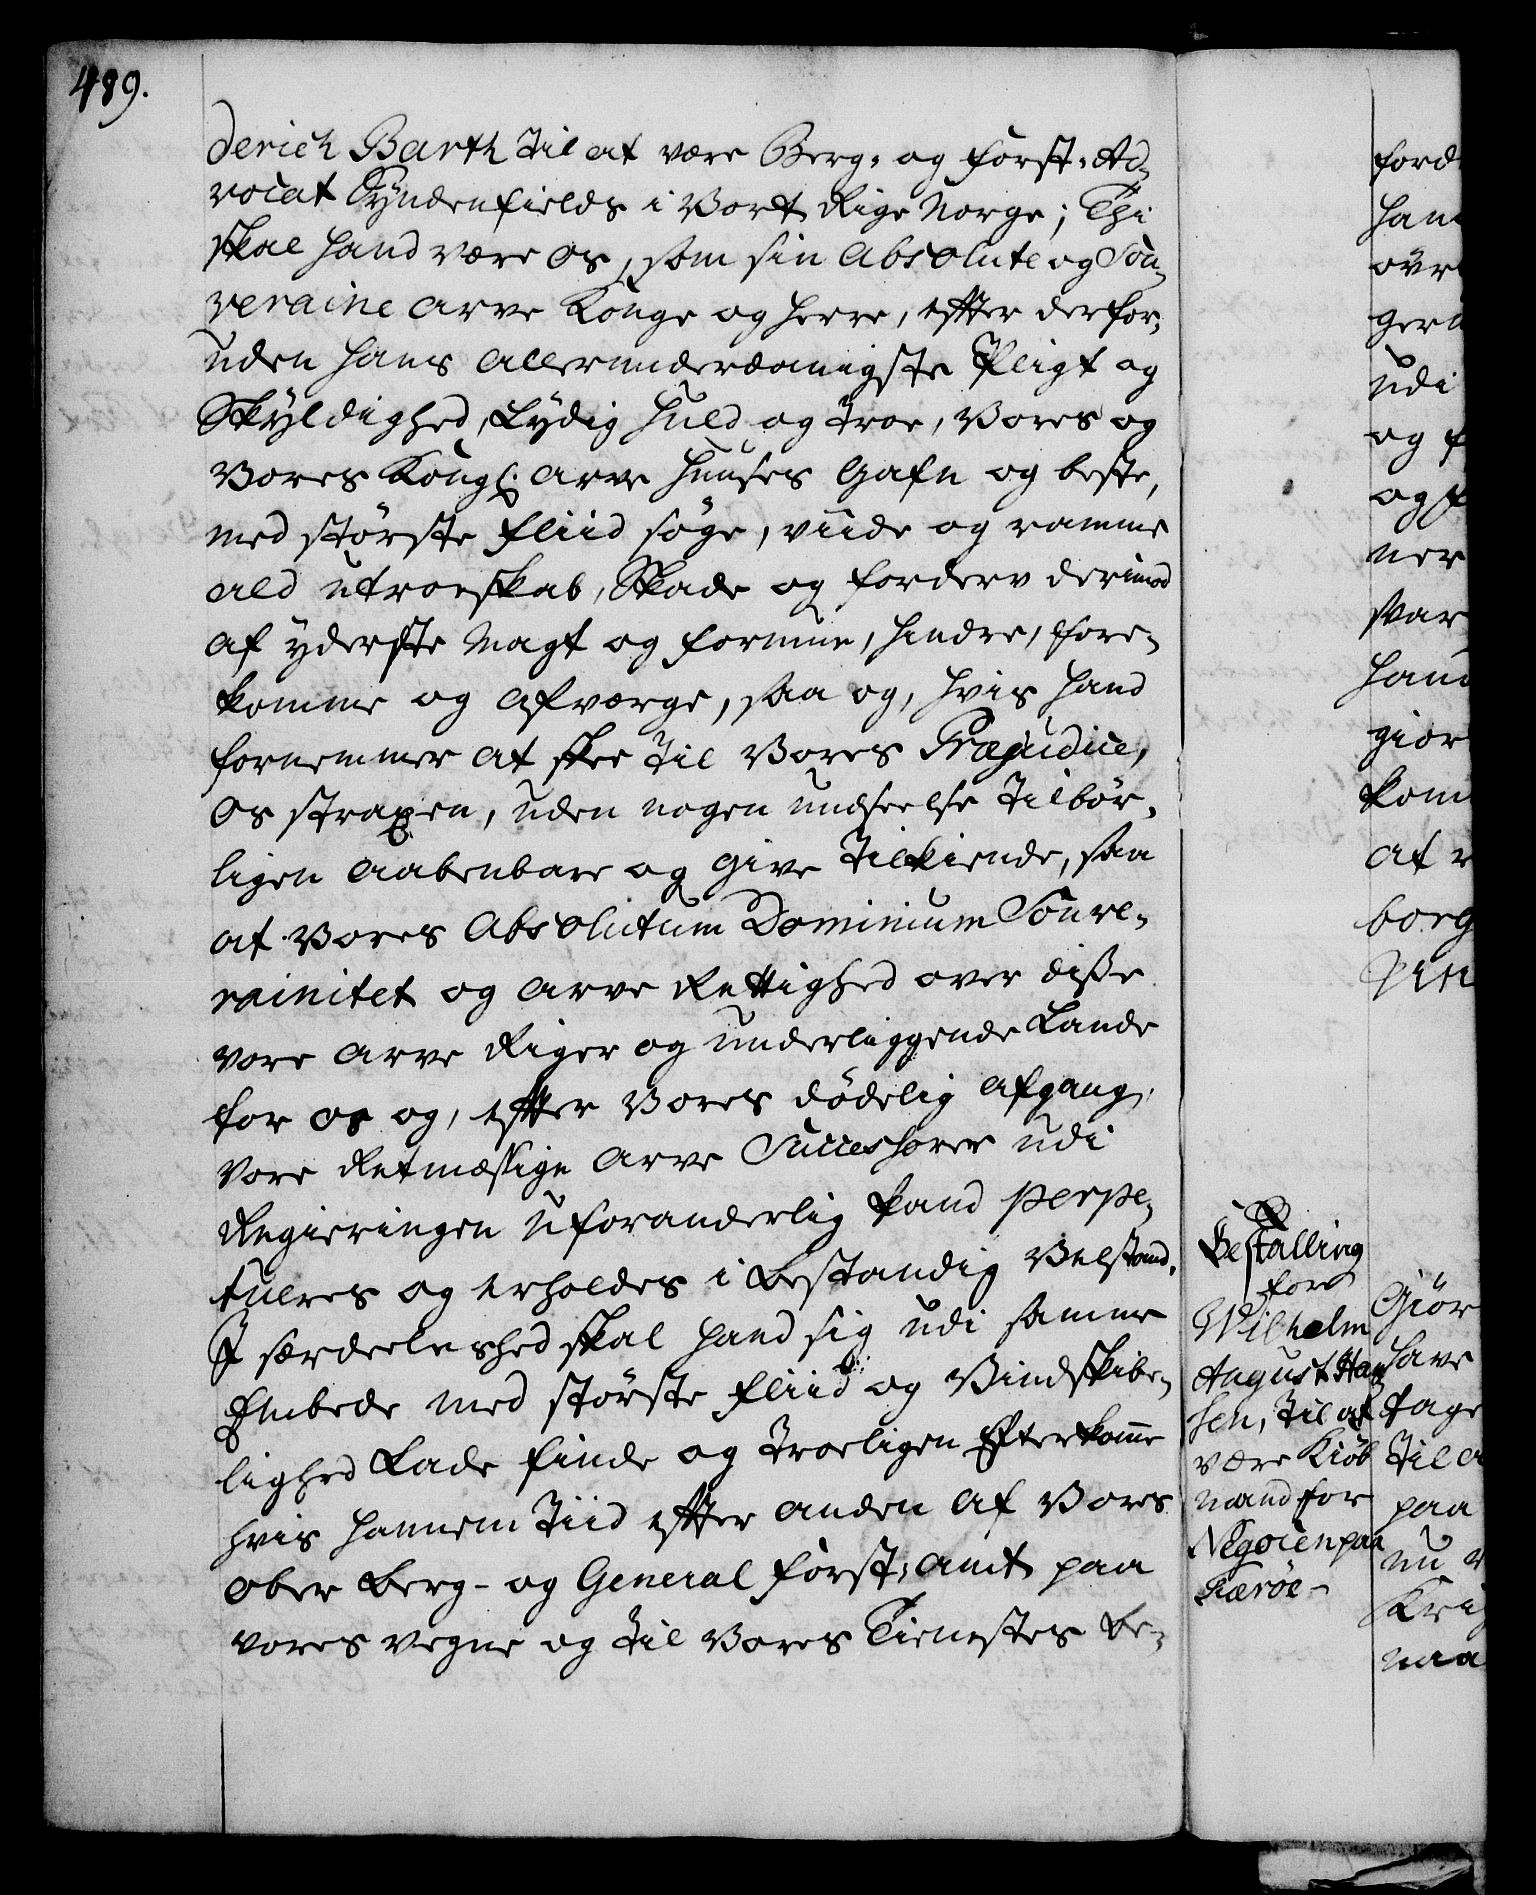 489.
derich Barth til at være Berg- og Forst-Ad-
vocat Syndenfields i Vort Rige Norge; Thi
skal hand være Os, som sin Absolute og Sou-
veraine Arve Konge og Herre, efter derfor-
uden hans allerunderdanigste Pligt og
Skyldighed, Lydig Huld og troe, Vores og
Vores Kongl: Arve Huuses Gafn og beste,
med störste Fliid söge, viide og ramme
ald utroeskab, Skade og forderv derimod
af yderste Magt og formue, hindre, fore-
komme og afværge, saa og, hvis hand
fornemmer at skee til Vores Præjudice,
Os straxen, uden nogen undseelse tilbör-
ligen aabenbare og give tilkiende, saa
at Vores Absolutum Dominium Souve-
rainitet og Arve Rettighed over disse
vore Arve Riger og underliggende Lande
for Os og, efter Vores dödelig afgang,
Vore Retmæssige Arve Successorer udi
Regieringen uforanderlig kand perpe-
tueres og erholdes i bestandig Velstand.
I særdeeleshed skal hand sig udi samme
Embede med störste Fliid og Vindskibe-
lighed Lade finde og troeligen Efterkomme
hvis hannem tiid efter anden af Vores
Ober Berg- og General Forst-Amt paa
vores vegne og til Vores Tienestes be-
Bestalling
for
Wilhelm
August Han-
sen, til at
være Kiöb-
mand for
Negocien paa
Færöe-
ford
hand
övr
gern
udi
og f
og f
ner
svar
hand
giör
kom
at v
borg
Giör
have
tage
til a
paa
nu v
Krig
maa